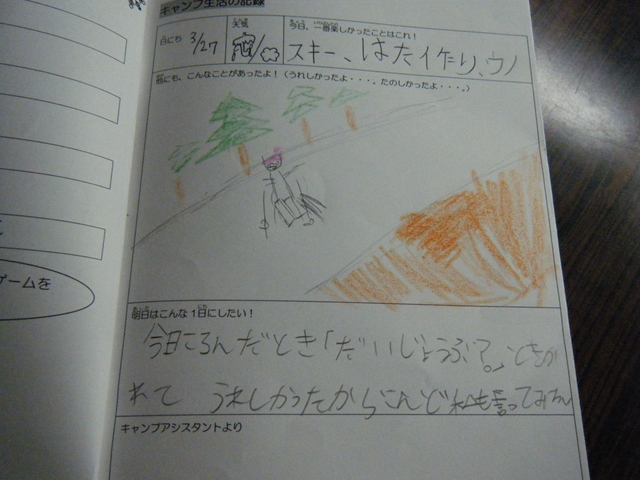 キャンプ生活の記録
日にち 3/27 天気
今日、一番楽しかったことはこれ!
スキー、はたイ作り、ウノ
他にも、こんなことがあったよ!(うれしかったよ・・・。たのしかったよ・・・。)
ゲームを
明日はこんな1日にしたい!
今日ころんだとき「だいじょうぶ?。」ときか
れて うれしかったからこんど私も言ってみたい
キャンプアシスタントより